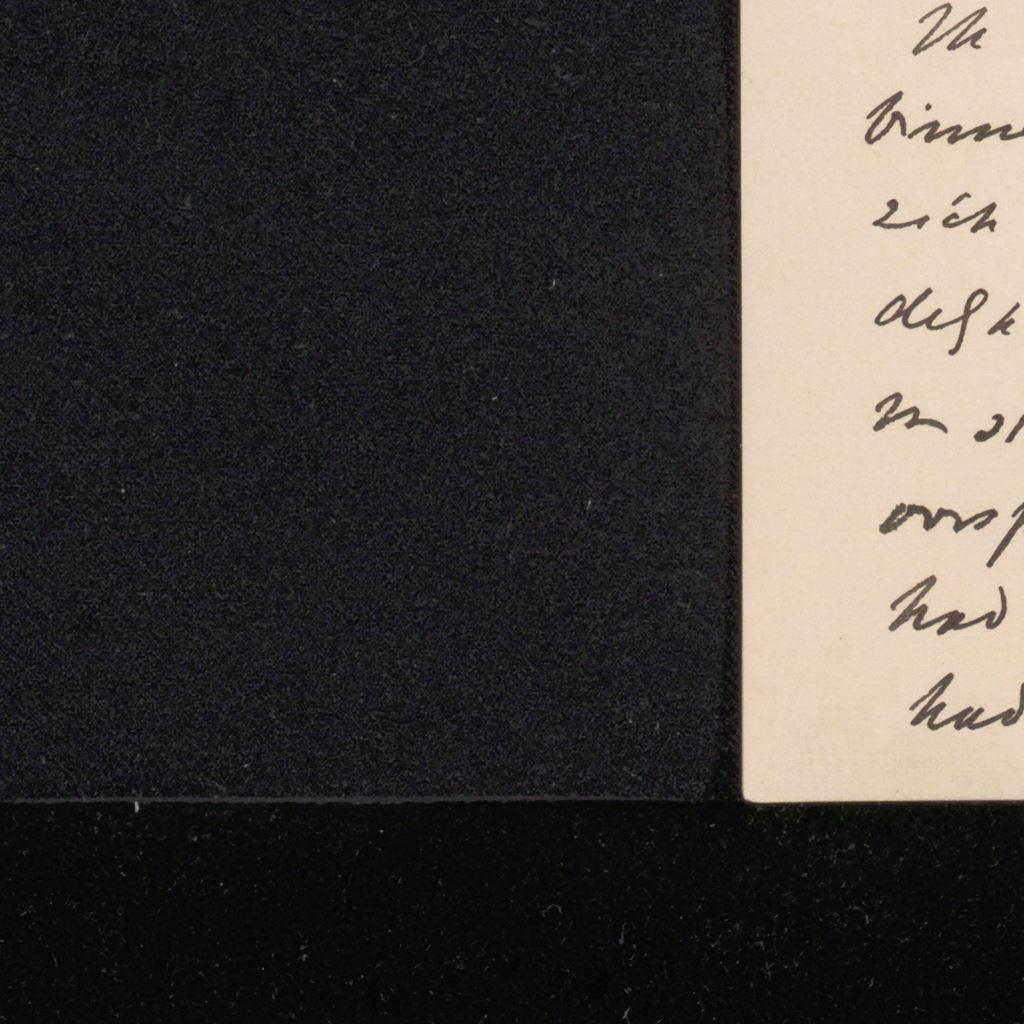 Ik
binne
zich
delg k
in zi
oorsp
had
had